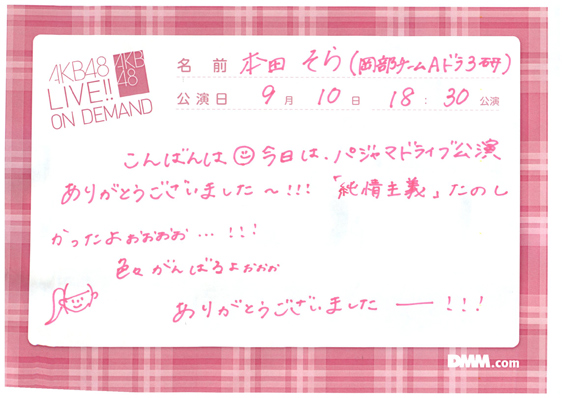 AKB48
LIVE!!
ON DEMAND
AKB
48
名前 本田 そら(岡部チームAドラ3研)
公演日 9月 10日 18:30公演
こんばんは 今日は、パジャマドライブ公演
ありがとうございました〜!!! 「純情主義」たのし
かったよぉぉぉぉ…!!!
色々がんばるよぉぉぉ
ありがとうございました ー!!!
DMM.com